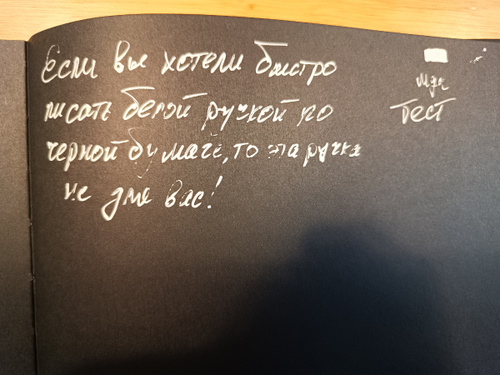 Если вы хотели быстро
писать белой ручкой по
черной бумаге, то эта ручка
не для вас!
тест